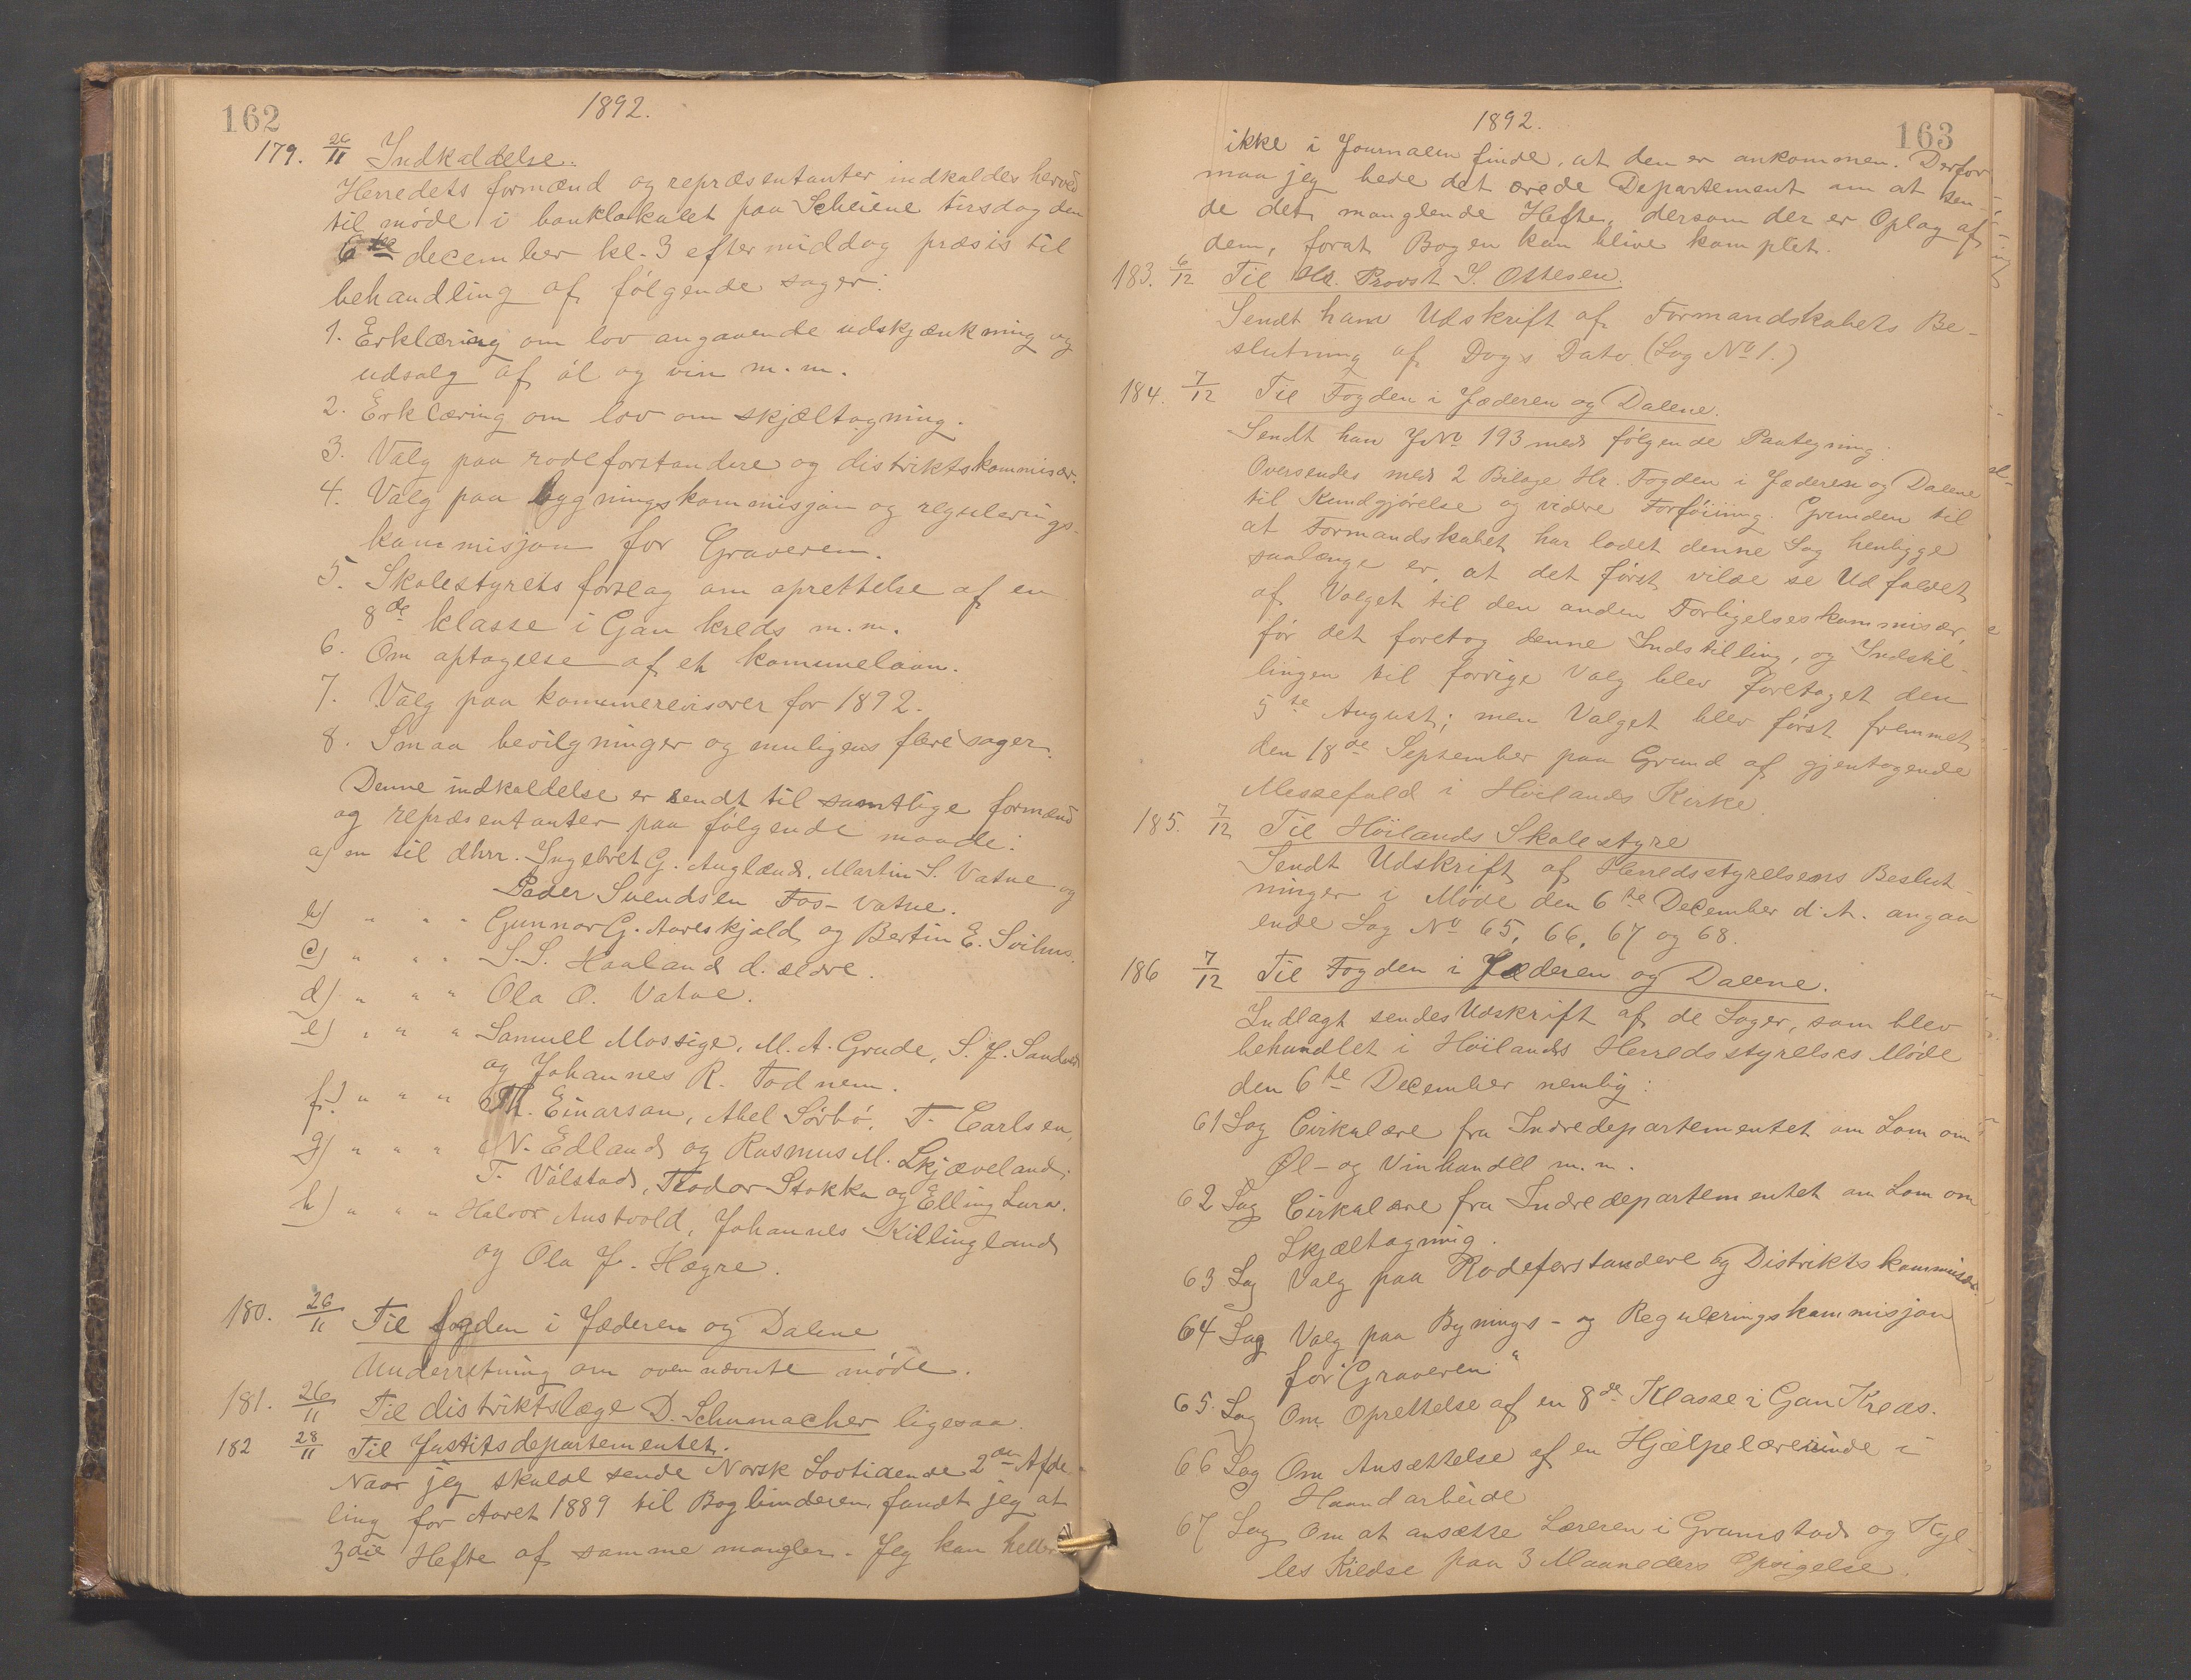 162
1892.
179. 26/11 Indkaldelse.
Herredets formænd og repræsentanter indkaldes herved
til møde i banklokalet paa Scheiene tirsdag den
6te december kl. 3 eftermiddag præsis til
behandling af følgende sager:
1. Erklæring om lov angaaende udskjænkning og
udsalg af øl og vin m.m.
2. Erklæring om lov om skjæltagning.
3. Valg paa rodeforstandere og distriktskommisær.
4. Valg paa bygningskommisjon og regulerings-
kommisjon for Graveren.
5. Skolestyrets forslag om oprettelse af en
8de klasse i Gan kreds m.m.
6. Om optagelse af et kommunelaan.
7. Valg paa kommunerevisorer for 1892.
8. Smaa bevilgninger og muligens flere sager.
Denne indkaldelse er sendt til samtlige formænd
og repræsentanter paa følgende maade:
a) en til dhrr. Ingebret G. Auglænd, Martin S. Vatne og
Peder Svendsen Fos-Vatne.
b) " " " Gunnar G. Aareskjold og Bertin E. Svihus.
c) " " " S.S. Haaland d. ældre.
d) " " " Ola O. Vatne.
e) " " " Samuel Mossige, M.A. Grude, S.J. Sandvid
og Johannes R. Todnem.
f) " " " Th. Einarson, Abel Sørbø, T. Carlsen,
g) " " " N. Edland og Rasmus M. Skjæveland.
T. Vålstad, Theodor Stokka og Elling Lura.
h) " " " Halvor Austvold, Johannes Killingland
og Ola J. Høgre.
180. 26/11 Til fogden i Jæderen og Dalene
Underretning om ovennævnte møde.
181. 26/11 Til distriktslæge D. Schumacher ligesaa.
182 28/11 Til Justitsdepartementet.
Naar jeg skulde sende Norsk Lovtidende 2den Afde-
ling for Aaret 1889 til Bogbinderen, fandt jeg at
3die Hefte af samme mangler. Jeg kan heller
163
1892.
ikke i Journalen finde, at den er ankommen. Derfor
maa jeg bede det ærede Departement om at sen-
de det manglende Hefte, dersom der er Oplag af
dem, forat Bogen kan blive komplet.
183. 6/12 Til Hr. Provst S. Ottesen.
Sendt ham Udskrift af Formandskabets Be-
slutning af Dags Dato (Sag No 1.)
184. 7/12 Til Fogden i Jæderen og Dalene.
Sendt ham JNo 193 med følgende Paategning:
Oversendes med 2 Bilage Hr. Fogden i Jæderen og Dalene
til Kundgjørelse og videre Forføining. Grunden til
at Formandskabet har ladet denne Sag henligge
saalænge er, at det først vilde se Udfaldet
af Valget til den anden Forligelseskommisær,
før det foretog denne Indstilling, og Indstil-
lingen til forrige Valg blev foretaget den
5te August; men Valget blev først fremmet
den 18de September paa Grund af gjentagende
Messefald i Høilands Kirke.
185. 7/12 Til Høilands Skolestyre
Sendt Udskrift af Herredsstyrelsens Beslut-
ninger i Møde den 6te December d.A. angaa-
ende Sag No 65, 66, 67 og 68.
186 7/12 Til Fogden i Jæderen og Dalene.
Indlagt sendes Udskrift af de Sager, som blev
behandlet i Høilands Herredsstyrelses Møde
den 6te December nemlig:
61 Sag Cirkulære fra Indredepartementet om Lom om
Øl- og Vinhandel m.m.
62 Sag Cirkulære fra Indredepartementet om Lom om
Skjæltagning.
63 Sag Valg paa Rodeforstandere og Distriktskommisær
64 Sag Valg paa Bynings- og Reguleringskommisjon
for "Graveren"
65. Sag Om Oprettelse af en 8de Klasse i Gan Kreds.
66 Sag Om Ansættelse af en Hjælpelærerinde i
Haandarbeide
67 Sag Om at ansætte Læreren i Gramstad og Kyl-
les Kredse paa 3 Maaneders Opsigelse.